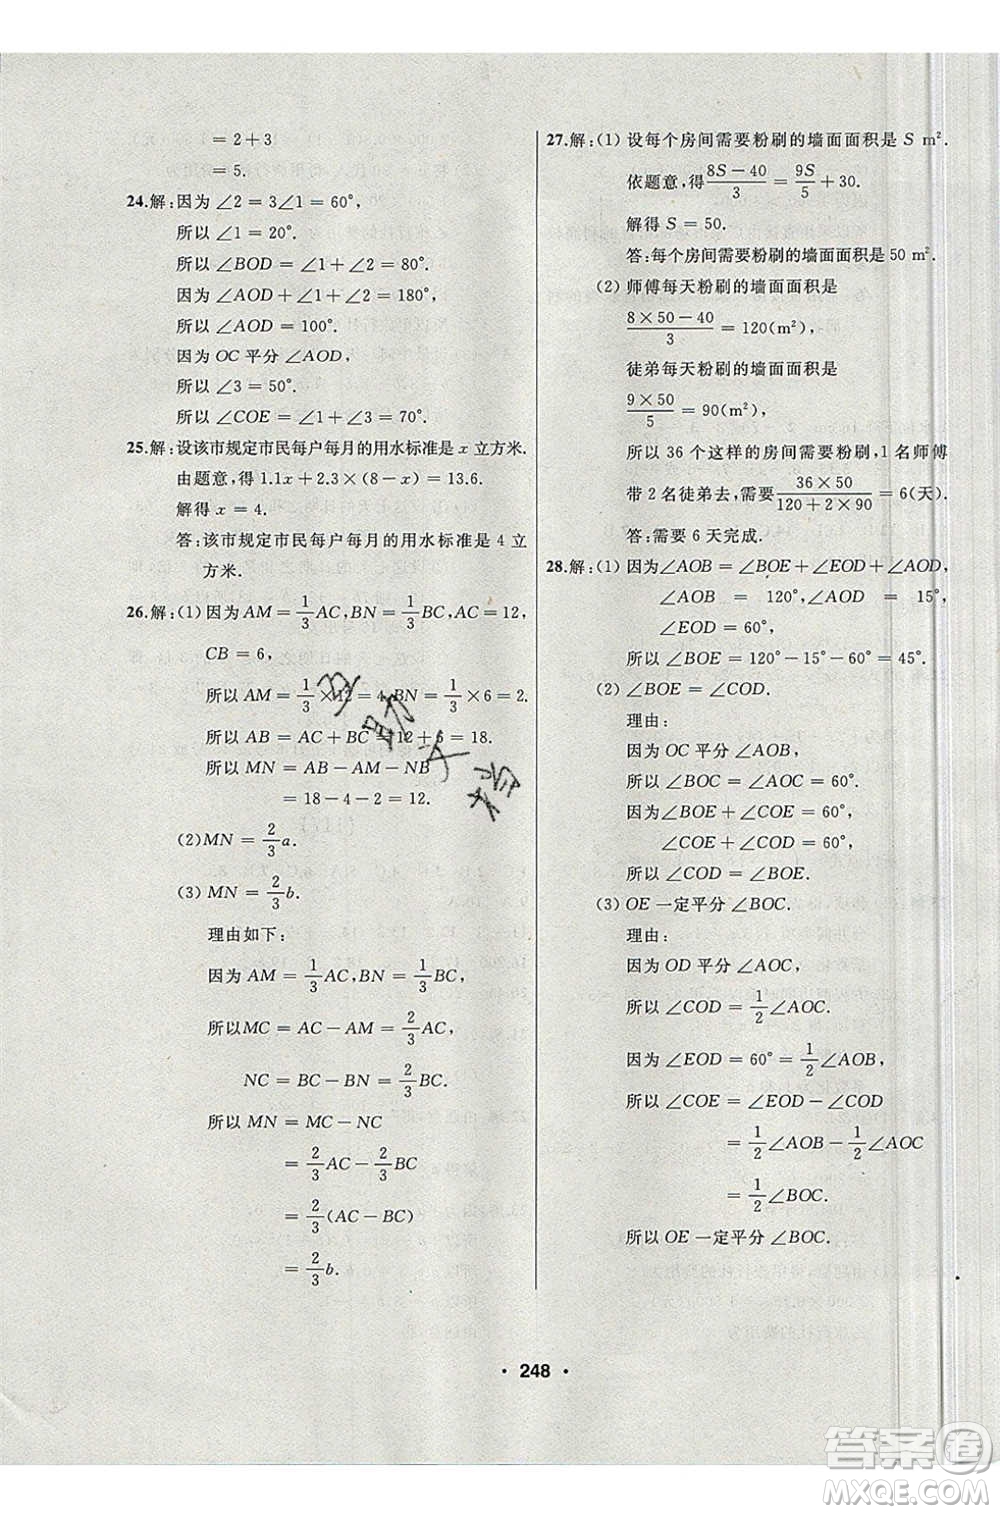 = 2 + 3
= 5.
24.解:因为 ∠2 = 3∠1 = 60°,
所以 ∠1 = 20°.
所以 ∠BOD = ∠1 + ∠2 = 80°.
因为 ∠AOD + ∠1 + ∠2 = 180°,
所以 ∠AOD = 100°.
因为 OC 平分 ∠AOD,
所以 ∠3 = 50°.
所以 ∠COE = ∠1 + ∠3 = 70°.
25.解:设该市规定市民每户每月的用水标准是 x 立方米.
由题意,得 1.1x + 2.3 × (8 - x) = 13.6.
解得 x = 4.
答:该市规定市民每户每月的用水标准是 4 立
方米.
26.解:(1) 因为 AM = 1/3 AC, BN = 1/3 BC, AC = 12,
CB = 6,
所以 AM = 1/3 × 12 = 4, BN = 1/3 × 6 = 2.
所以 AB = AC + BC = 12 + 6 = 18.
所以 MN = AB - AM - NB
= 18 - 4 - 2 = 12.
(2) MN = 2/3 a.
(3) MN = 2/3 b.
理由如下:
因为 AM = 1/3 AC, BN = 1/3 BC,
所以 MC = AC - AM = 2/3 AC,
NC = BC - BN = 2/3 BC.
所以 MN = MC - NC
= 2/3 AC - 2/3 BC
= 2/3 (AC - BC)
= 2/3 b.
27.解:(1) 设每个房间需要粉刷的墙面面积是 S m².
依题意,得 (8S - 40)/3 = 9S/5 + 30.
解得 S = 50.
答:每个房间需要粉刷的墙面面积是 50 m².
(2) 师傅每天粉刷的墙面面积是
(8 × 50 - 40)/3 = 120(m²),
徒弟每天粉刷的墙面面积是
(9 × 50)/5 = 90(m²),
所以 36 个这样的房间需要粉刷,1 名师傅
带 2 名徒弟去,需要 (36 × 50)/(120 + 2 × 90) = 6(天).
答:需要 6 天完成.
28.解:(1) 因为 ∠AOB = ∠BOE + ∠EOD + ∠AOD,
∠AOB = 120°, ∠AOD = 15°,
∠EOD = 60°,
所以 ∠BOE = 120° - 15° - 60° = 45°.
(2) ∠BOE = ∠COD.
理由:
因为 OC 平分 ∠AOB,
所以 ∠BOC = ∠AOC = 60°.
因为 ∠BOE + ∠COE = 60°,
∠COE + ∠COD = 60°,
所以 ∠COD = ∠BOE.
(3) OE 一定平分 ∠BOC.
理由:
因为 OD 平分 ∠AOC,
所以 ∠COD = 1/2 ∠AOC.
因为 ∠EOD = 60° = 1/2 ∠AOB,
所以 ∠COE = ∠EOD - ∠COD
= 1/2 ∠AOB - 1/2 ∠AOC
= 1/2 ∠BOC.
所以 OE 一定平分 ∠BOC.
• 248 •
答案圈
MXQE.COM